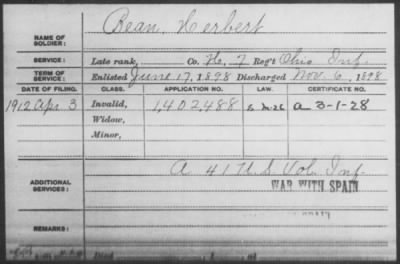 Bean, Herbert
NAME OF SOLDIER:
SERVICE: Late rank, Co. H, 7 Reg't Ohio Inf.
TERM OF SERVICE: Enlisted June 17, 1898 Discharged Nov. 6, 1898
DATE OF FILING. CLASS. APPLICATION NO. CERTIFICATE NO.
1912 Apr 3 Invalid, 1,402,488 A 3-1-28
Widow,
Minor,
ADDITIONAL SERVICES: A 41 U.S. Vol. Inf.
WAR WITH SPAIN
REMARKS:
Died